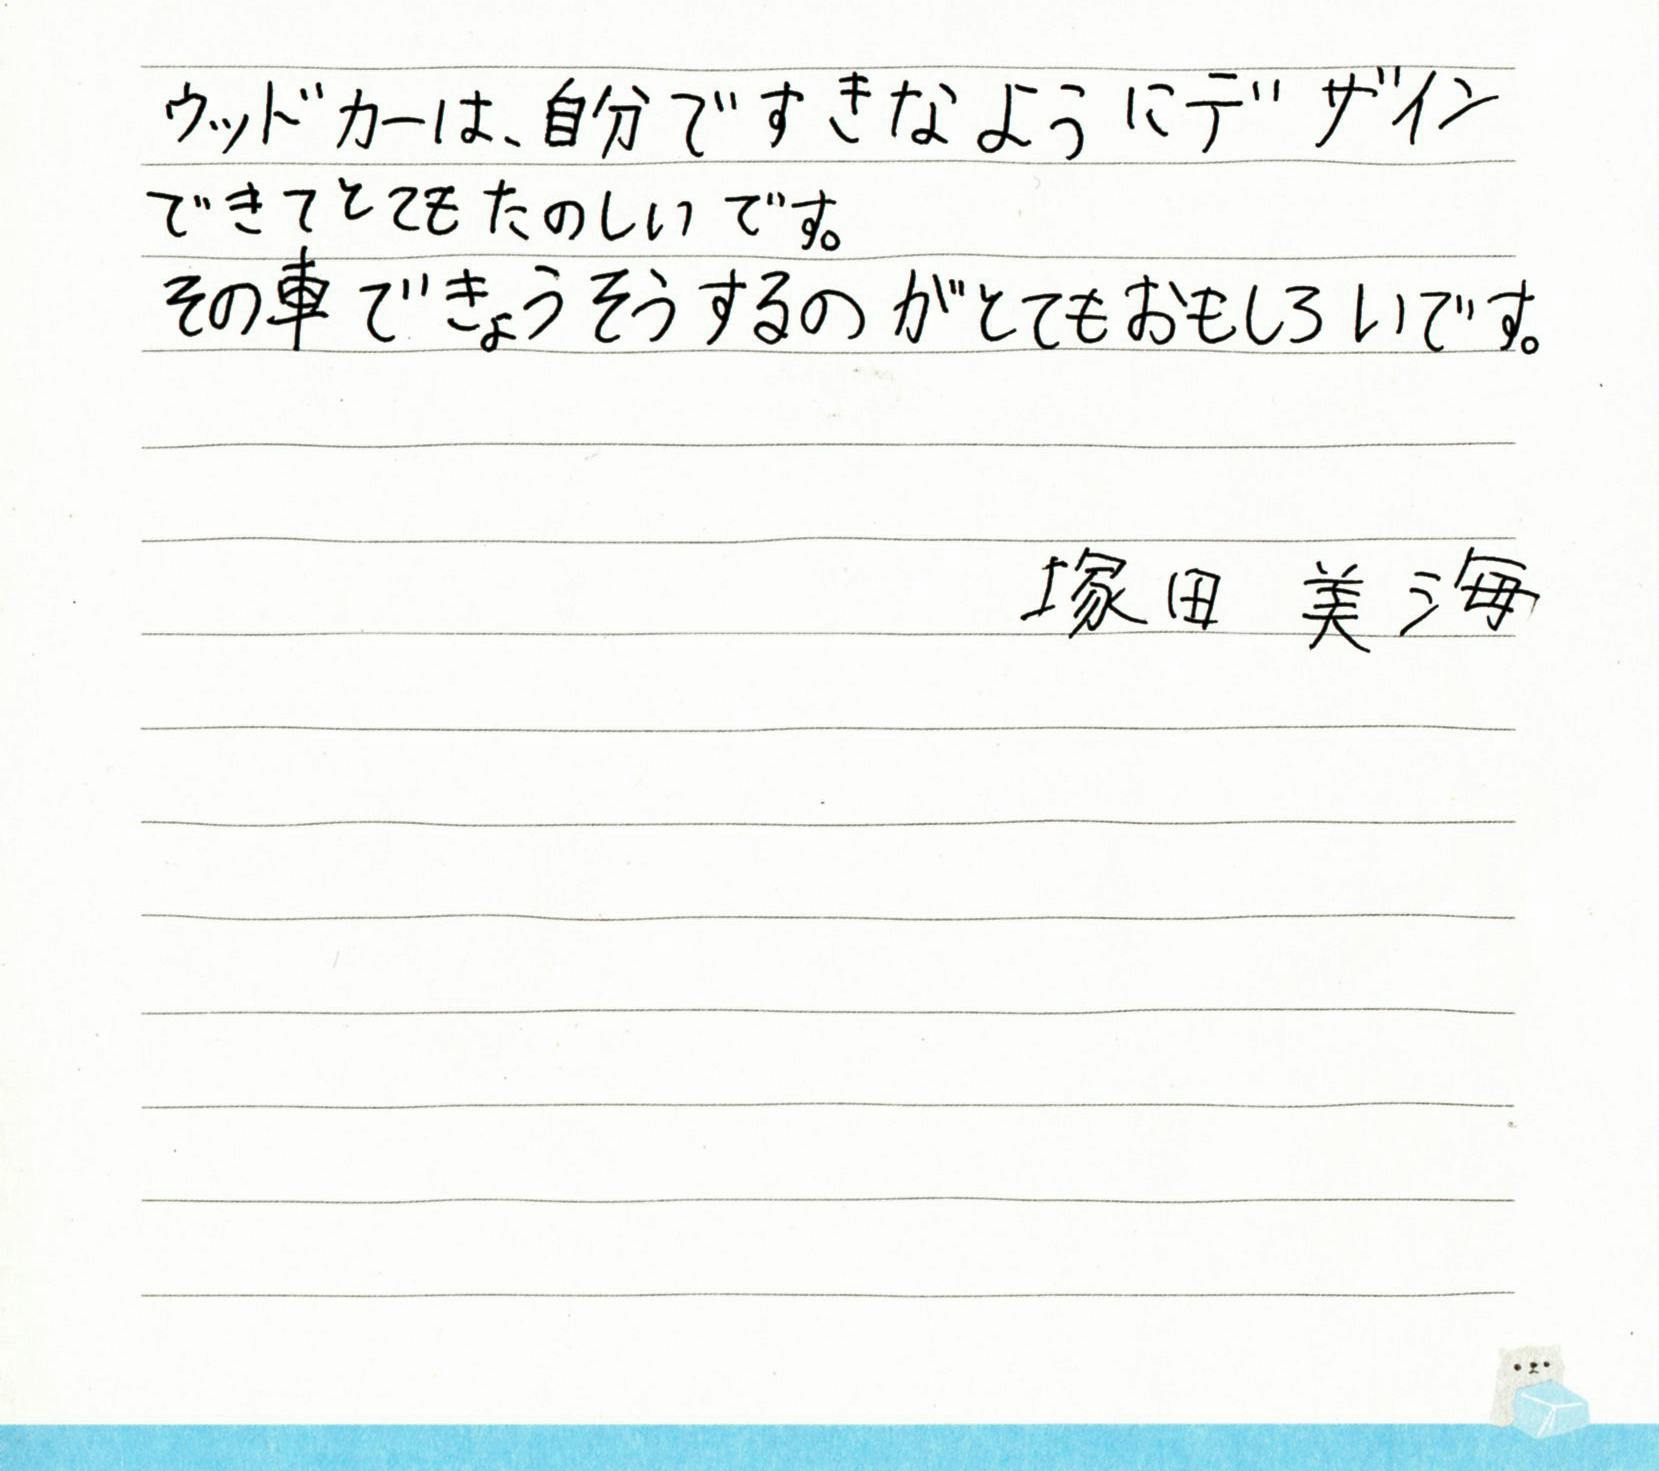 ウッドカーは、自分ですきなようにデザイン
できてとてもたのしいです。
その車できょうそうするのがとてもおもしろいです。
塚田 美海